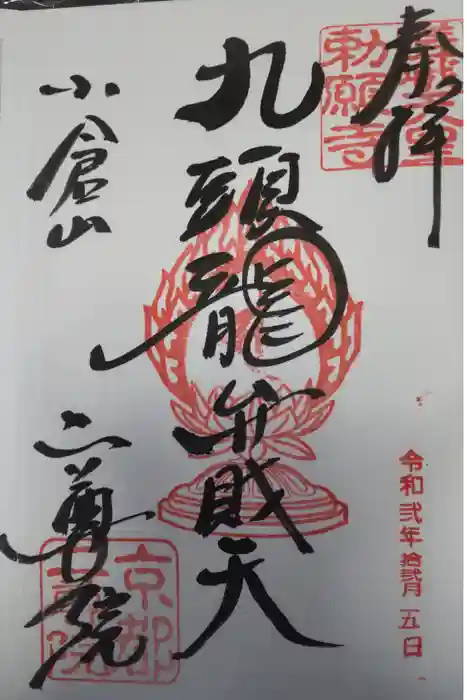 奉拝
勅願寺
九頭龍弁財天
小倉山
二尊院
京都
令和弐年拾弐月五日